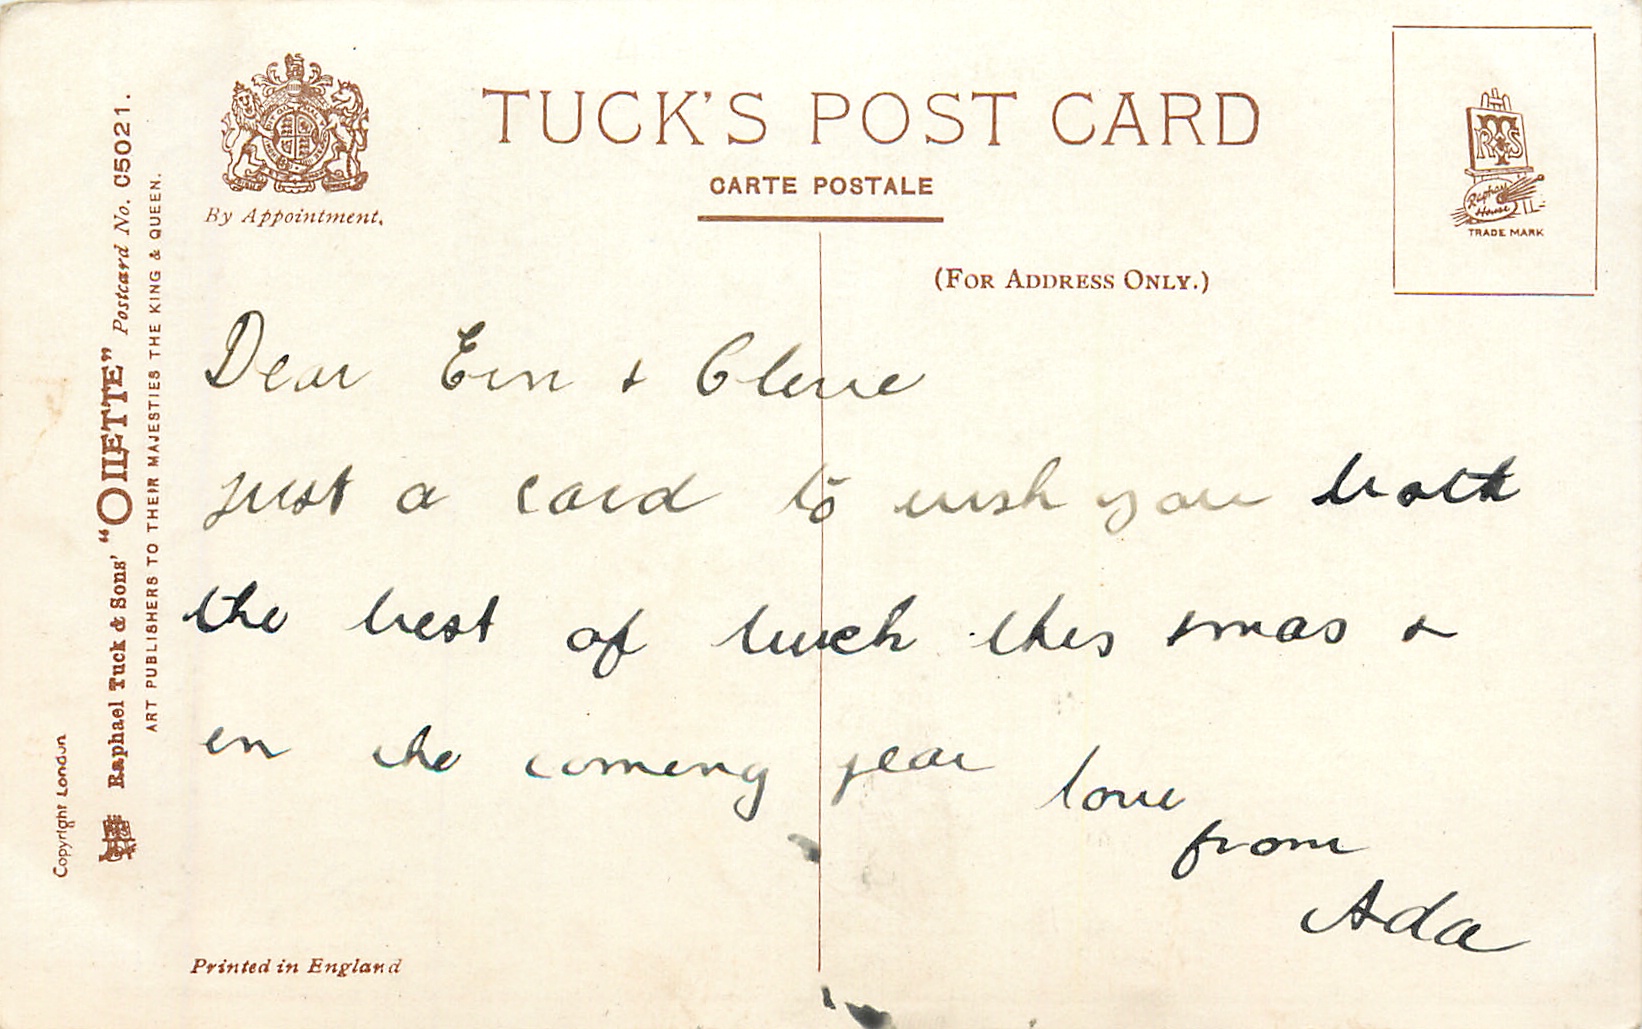 TUCK'S POST CARD
CARTE POSTALE
By Appointment.
(FOR ADDRESS ONLY.)
RTS
Raphael House
TRADE MARK
Copyright London
Raphael Tuck & Sons' "OILETTE" Postcard No. C5021.
ART PUBLISHERS TO THEIR MAJESTIES THE KING & QUEEN.
Dear Ern &
just a card to wish you both
the best of luck this xmas &
in the coming year
love
from
Ada
Printed in England